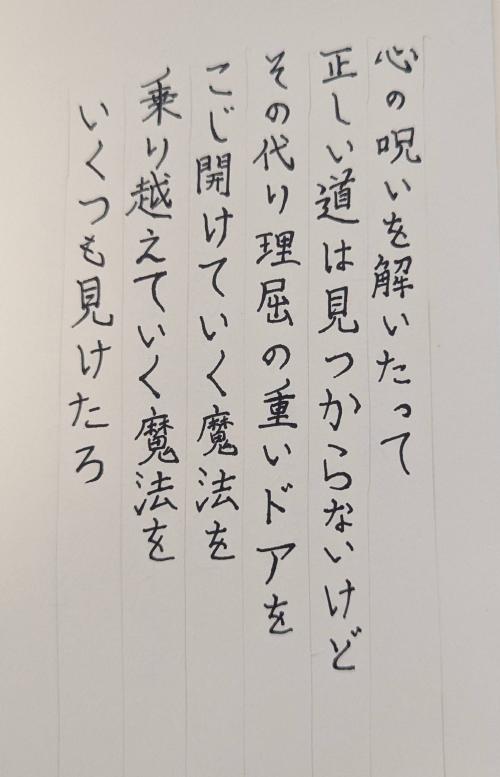 心の呪いを解いたって
正しい道は見つからないけど
その代り理屈の重いドアを
こじ開けていく魔法を
乗り越えていく魔法を
いくつも見けたろ